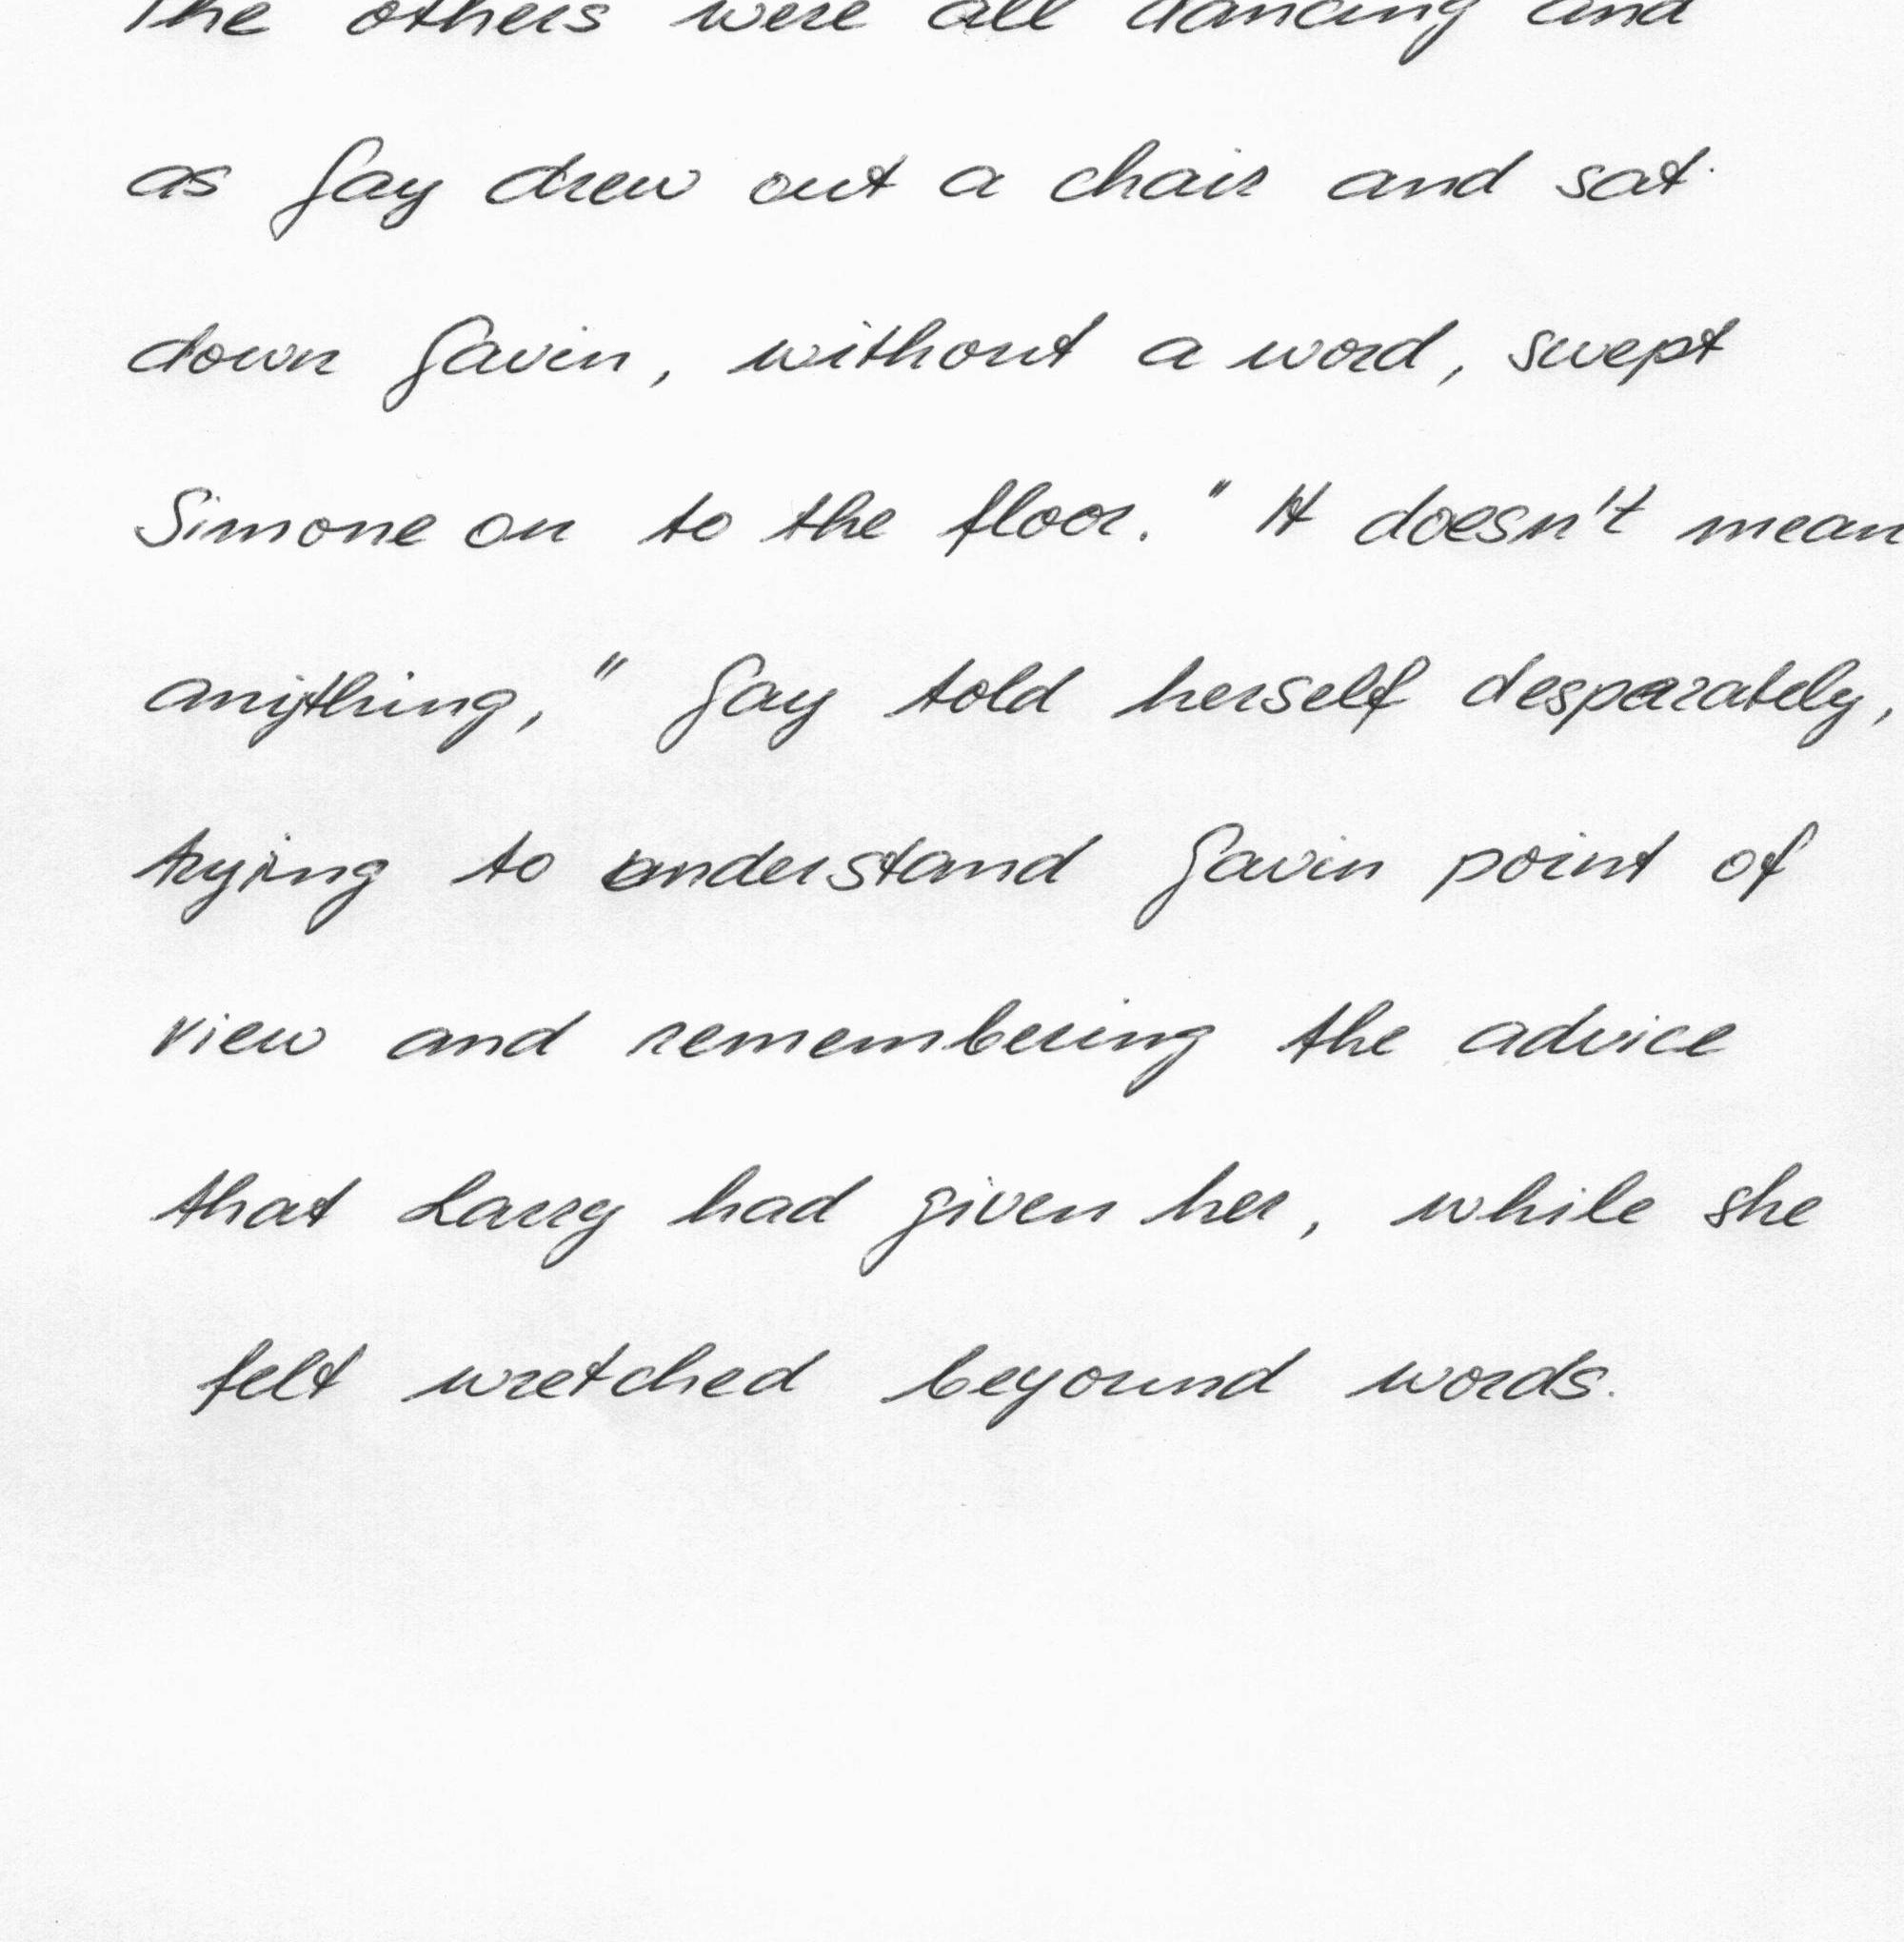 The others were all dancing and
as Gay drew out a chair and sat
down Gavin, without a word, swept
Simone on to the floor. "It doesn't mean
anything," Gay told herself desparately,
trying to understand Gavin point of
view and remembering the advice
that Larry had given her, while she
felt wretched beyound words.